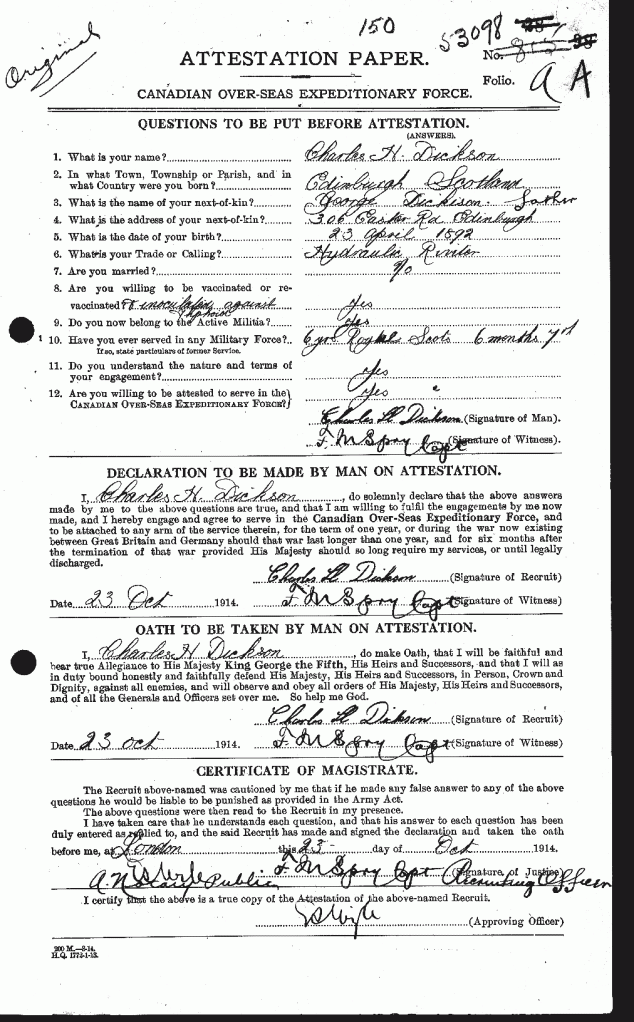 Original
150
53098
No.
ATTESTATION PAPER.
Folio. a A
CANADIAN OVER-SEAS EXPEDITIONARY FORCE.
QUESTIONS TO BE PUT BEFORE ATTESTATION.
(ANSWERS).
1. What is your name? Charles H. Dickson
2. In what Town, Township or Parish, and in
what Country were you born? Edinburgh Scotland
3. What is the name of your next-of-kin? George Dickison. Father
4. What is the address of your next-of-kin? 306 Easter Rd Edinburgh
5. What is the date of your birth? 23 April 1892
6. What is your Trade or Calling? Hydraulic
7. Are you married? No
8. Are you willing to be vaccinated or re-
vaccinated? or inoculation against Yes
Typhoid
9. Do you now belong to the Active Militia? Yes
10. Have you ever served in any Military Force? 6 yrs Royal Scots 6 months 7th
If so, state particulars of former Service.
11. Do you understand the nature and terms of
your engagement? Yes
12. Are you willing to be attested to serve in the
CANADIAN OVER-SEAS EXPEDITIONARY FORCE? Yes
Charles H Dickson (Signature of Man).
F. M Spry Capt (Signature of Witness).
DECLARATION TO BE MADE BY MAN ON ATTESTATION.
I, Charles H. Dickson, do solemnly declare that the above answers
made by me to the above questions are true, and that I am willing to fulfil the engagements by me now
made, and I hereby engage and agree to serve in the Canadian Over-Seas Expeditionary Force, and
to be attached to any arm of the service therein, for the term of one year, or during the war now existing
between Great Britain and Germany should that war last longer than one year, and for six months after
the termination of that war provided His Majesty should so long require my services, or until legally
discharged.
Charles H Dickson (Signature of Recruit)
Date 23 Oct 1914. F. M Spry Capt (Signature of Witness)
OATH TO BE TAKEN BY MAN ON ATTESTATION.
I, Charles H Dickson, do make Oath, that I will be faithful and
bear true Allegiance to His Majesty King George the Fifth, His Heirs and Successors, and that I will as
in duty bound honestly and faithfully defend His Majesty, His Heirs and Successors, in Person, Crown and
Dignity, against all enemies, and will observe and obey all orders of His Majesty, His Heirs and Successors,
and of all the Generals and Officers set over me. So help me God.
Charles H Dickson (Signature of Recruit)
Date 23 Oct 1914. F. M Spry Capt (Signature of Witness)
CERTIFICATE OF MAGISTRATE.
The Recruit above-named was cautioned by me that if he made any false answer to any of the above
questions he would be liable to be punished as provided in the Army Act.
The above questions were then read to the Recruit in my presence.
I have taken care that he understands each question, and that his answer to each question has been
duly entered as replied to, and the said Recruit has made and signed the declaration and taken the oath
before me, at London this 23 day of Oct 1914.
F. M Spry Capt (Signature of Justice) Recruiting Officer
A Notary Public
I certify that the above is a true copy of the Attestation of the above-named Recruit.
(Approving Officer)
200 M.—8-14.
H.Q. 1772-1-13.